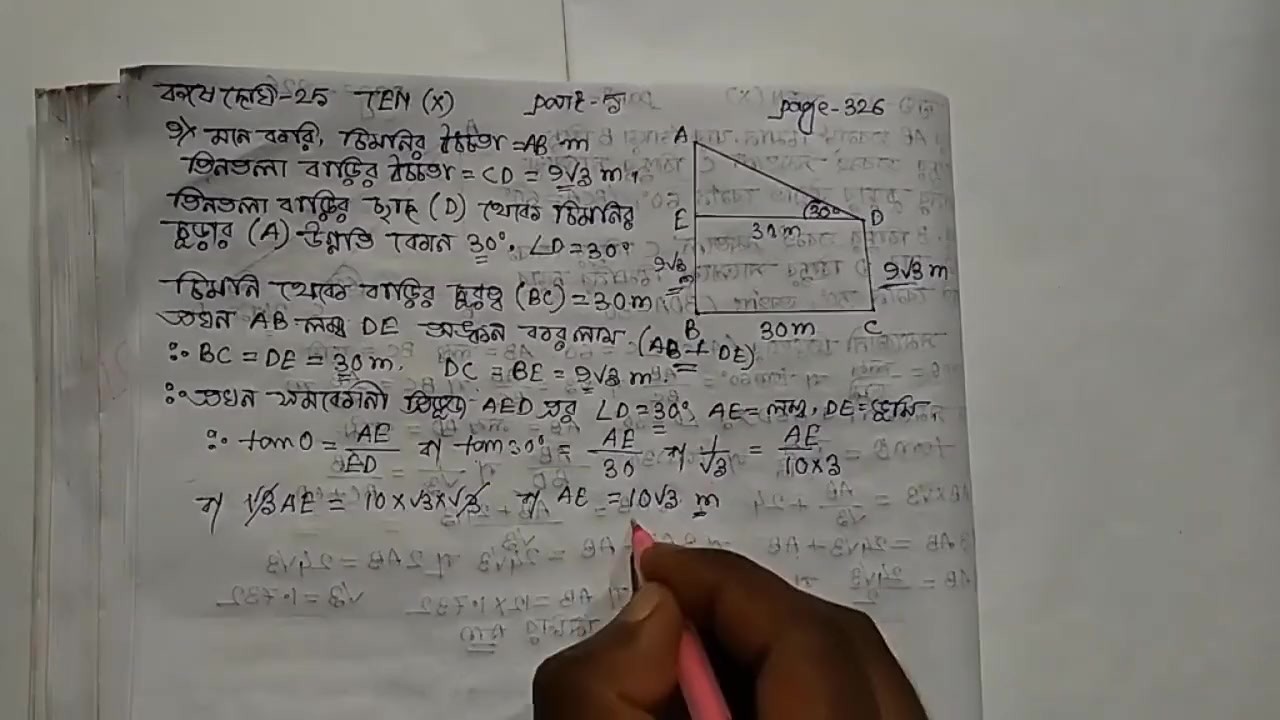 কষে দেখি-25 TEN (X) part-5 page-326
9× মনে করি, চিমনির উচ্চতা = AB m
তিনতলা বাড়ির উচ্চতা = CD = 9√3 m,
তিনতলা বাড়ির ছাদ (D) থেকে চিমনির
চূড়ার (A) উন্নতি কোণ 30°. ∠D = 30°
চিমনি থেকে বাড়ির দূরত্ব (BC) = 30m
তখন AB লম্ব DE অঙ্কন করলাম. (AB ⊥ DE)
∴ BC = DE = 30 m. DC = BE = 9√3 m.
∴ তখন সমকোণী ত্রিভুজ AED এর ∠D = 30°, AE = লম্ব, DE = ভূমি
∴ tan θ = AE/ED বা tan 30° = AE/30 বা 1/√3 = AE/10×3
বা √3 AE = 10 × √3 × √3 বা AE = 10√3 m
A
E 30° D
30m
9√3 m 9√3 m
B 30m C